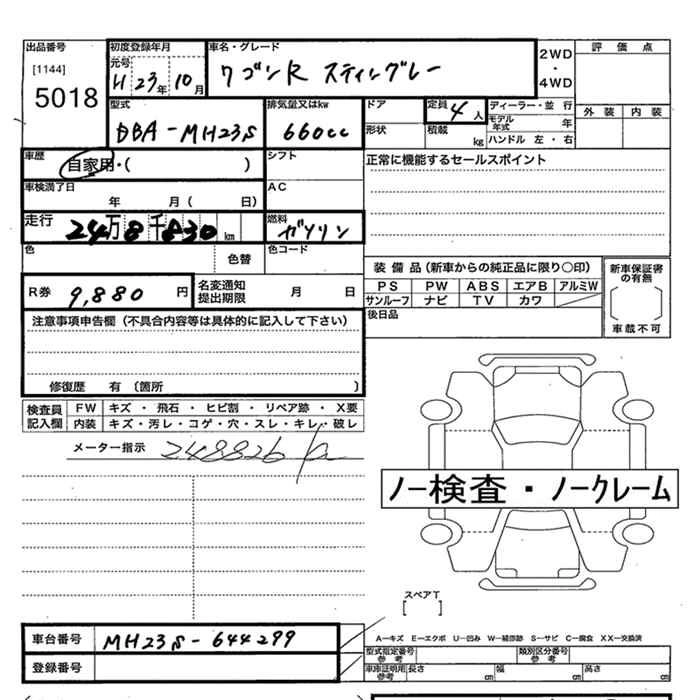 出品番号 初度登録年月 車名・グレード 2WD・4WD 評価点
[1144] 元号
5018 H 23年 10月 ワゴンR スティングレー
型式 排気量又はkw ドア 定員 4人 ディーラー・並行 外装 内装
DBA-MH23S 660cc 形状 積載 kg モデル年式 年
ハンドル 左・右
車歴 シフト 正常に機能するセールスポイント
自家用・( )
車検満了日 AC
年 月( 日)
走行 24万8千830km 燃料 ガソリン
色 色替 色コード
装備品(新車からの純正品に限り○印) 新車保証書の有無
PS PW ABS エアB アルミW
サンルーフ ナビ TV カワ
後日品 車載不可
R券 9,880円 名変通知提出期限 月 日
注意事項申告欄(不具合内容等は具体的に記入して下さい)
修復歴 有〔箇所 〕
検査員記入欄 FW キズ・飛石・ヒビ割・リペア跡・X要
内装 キズ・汚レ・コゲ・穴・スレ・キレ・破レ
メーター指示 248826
ノー検査・ノークレーム
スペアT
[ ]
車台番号 MH23S-644299
A-キズ E-エクボ U-凹み W-補修跡 S-サビ C-腐食 XX-交換済
登録番号 型式指定番号 参考 類別区分番号 参考
車庫証明用 参考 長さ cm 幅 cm 高さ cm